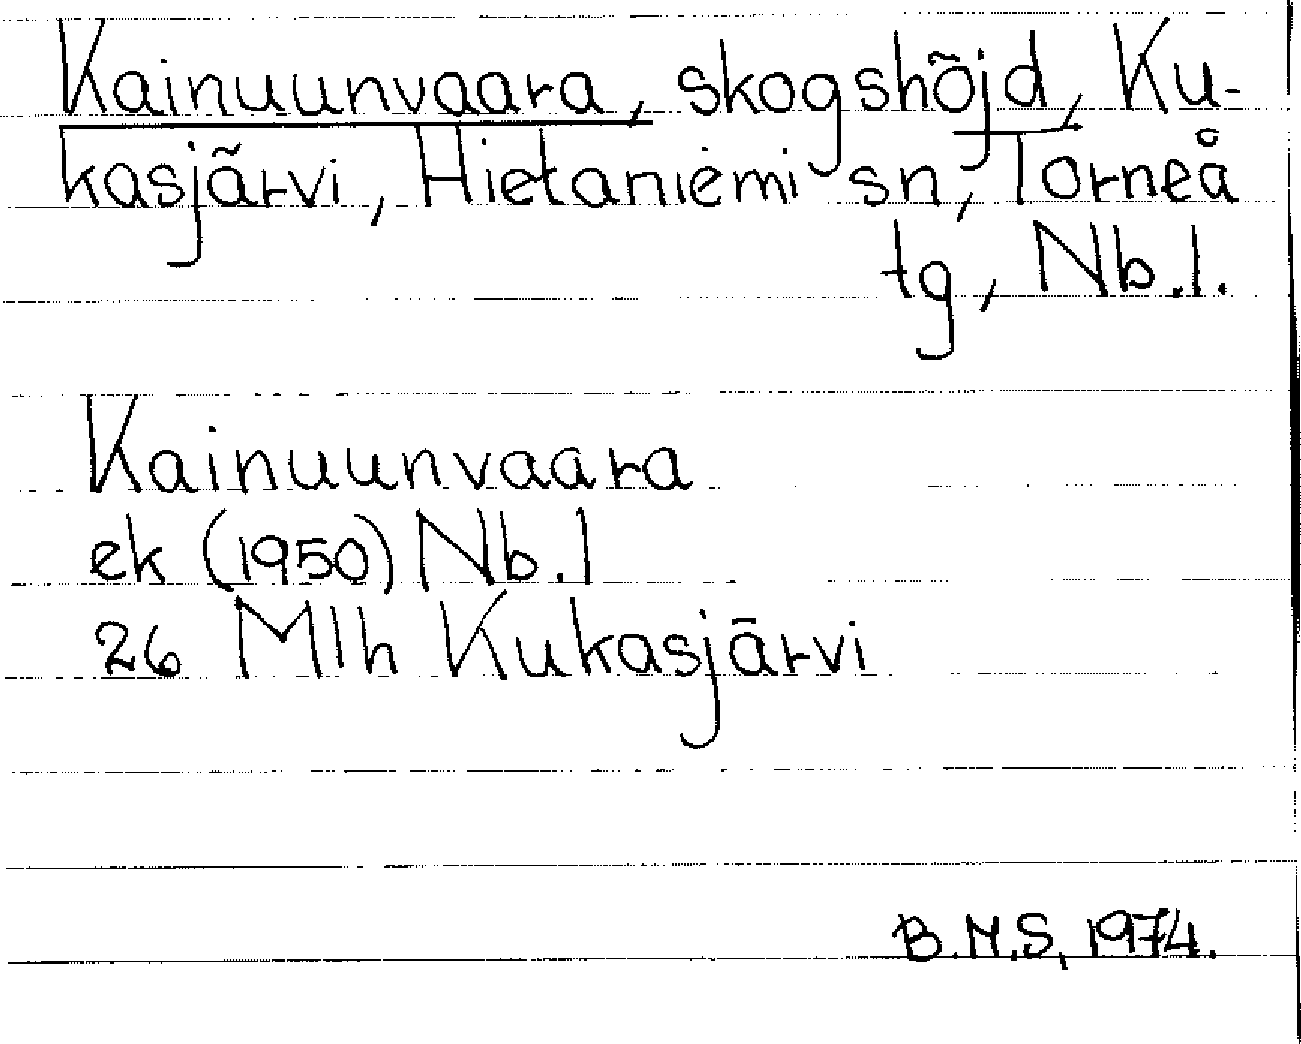 Kainuunvaara, skogshöjd, Ku-
kasjärvi, Hietaniemi sn, Torneå
tg, Nb.l.
Kainuunvaara
ek (1950) Nb.l
26 Mlh Kukasjärvi
B.N.S, 1974.